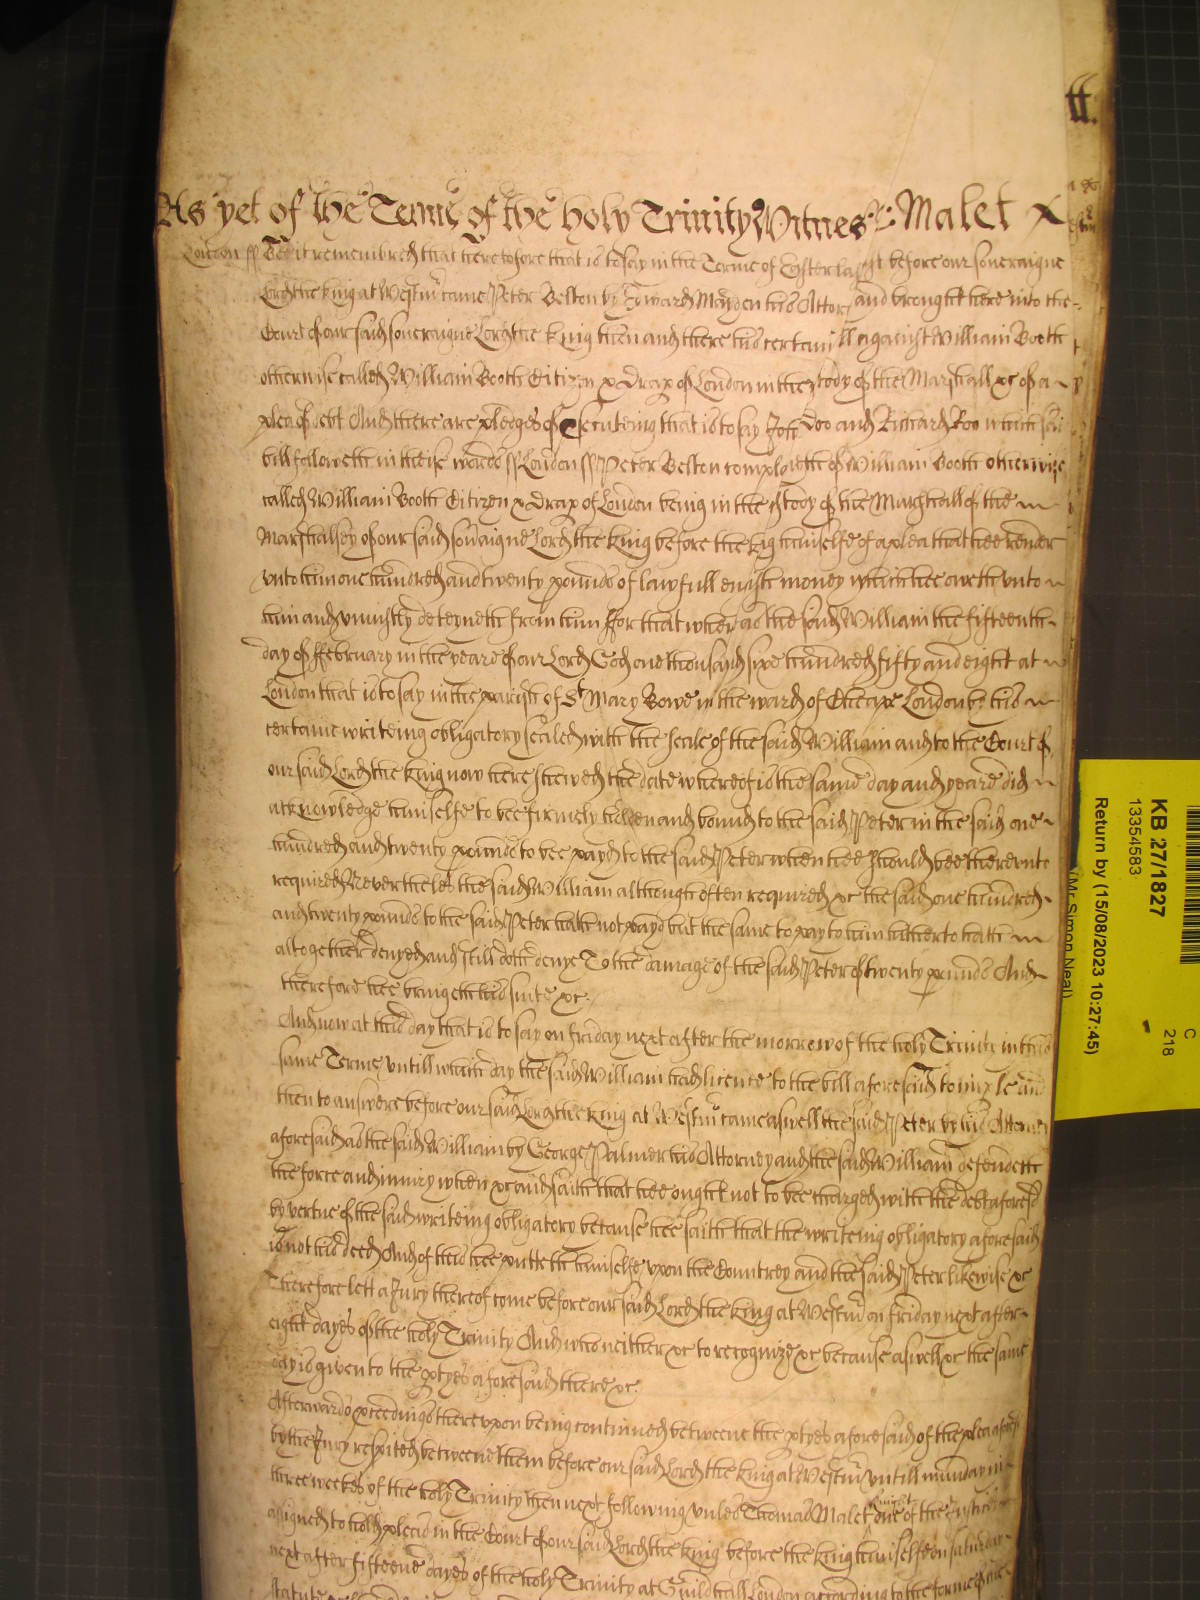 tt.
As yet of the Terme of the holy Trinity Witnes &c: Malet X
London ss Bee it remembred that heretofore that is to say in the Terme of Easter last past before our soueraigne
Lord the King at Westm̄ came Peter Belton by Edward Mayden his Attor̄ and brought here into the
Court of our said soueraigne Lord the King then and there his certain bill against William Booth
otherwise called William Booth Citizen & Drap of London in the Custody of the Marshall &c of a
plea of debt And there are pledges of prosecuteing that is to say John Doo and Richard Roo which said
bill followeth in theise wordes ss London ss Peter Belton complaineth of William Booth otherwise
called William Booth Citizen & Drap of London being in the Custody of the Marshall of the
Marshalsey of our said sov̄aigne Lord the King before the King himselfe of a plea that hee render
vnto him one hundred and twenty pounds of lawfull english money which hee oweth vnto
him and vniustly deteyneth from him ffor that whereas the said William the fifteenth
day of ffebruary in the yeare of our Lord God one thousand sixe hundred fifty and eight at
London that is to say in the parish of St Mary Bowe in the ward of Cheape London by his
certaine writeing obligatory sealed with the seale of the said William and to the Court of
our said Lord the King now here shewed the date whereof is the same day and yeare did
acknowledge himselfe to bee firmely holden and bound to the said Peter in the said one
hundred and twenty pounds to bee payd to the said Peter when hee should bee therevnto
required Neverthelesse the said William although often required &c the said one hundred
and twenty pounds to the said Peter hath not payd but the same to pay to him hitherto hath
altogether denyed and still doth denye To the damage of the said Peter of twenty pounds And
therefore hee bringeth his suite &c.
And now at this day that is to say on friday next after the morrow of the holy Trinity in this
same Terme vntill which day the said William had licence to the bill aforesaid to imple and
then to answere before our said Lord the King at Westm̄ came aswell the said Peter by his Attorney
aforesaid as the said William by George Palmer his Attorney and the said William defendeth
the force and iniury when &c and saith that hee ought not to bee charged with the debt aforesd
by vertue of the said writeing obligatory because hee saith that the writeing obligatory aforesaid
is not his deed And of this hee putteth himselfe vpon the Countrey and the said Peter likewise &c
Therefore lett a Jury thereof come before our said Lord the King at Westm̄ on friday next after
eight dayes of the holy Trinity And who neither &c to recognize &c because aswell &c the same
day is given to the ptyes aforesaid there &c.
Afterwards pceedings therevpon being continued betweene the ptyes aforesaid of the plea aforesd
by the Jury respited betweene them before our said Lord the King at Westm̄ vntill munday in
three weekes of the holy Trinity then next following vnles Thomas Malet knight one of the Justices
assigned to hold pleas in the Court of our said Lord the King before the King himselfe on saturday
next after fifteene dayes of the holy Trinity at Guildhall London according to the forme of the
statute
KB 27/1827
13354583
C
218
Return by (15/08/2023 10:27:45)
(Mr Simon Neal)